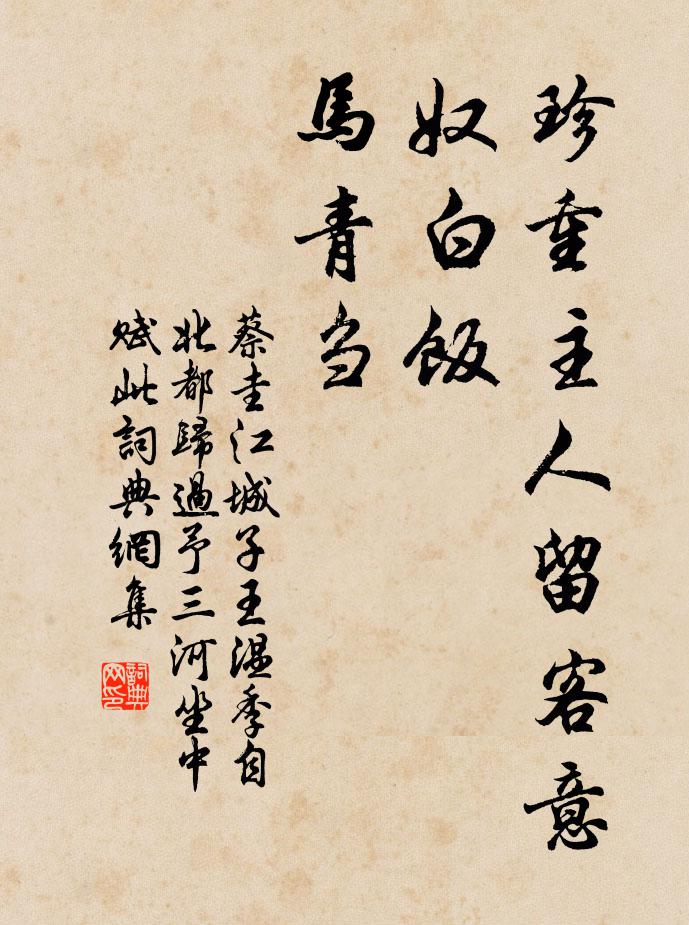 珍重主人留客意
奴白飯
馬青芻
蔡圭江城子王溫季自
北都歸過予三河坐中
賦此詞典網集
詞典
网印